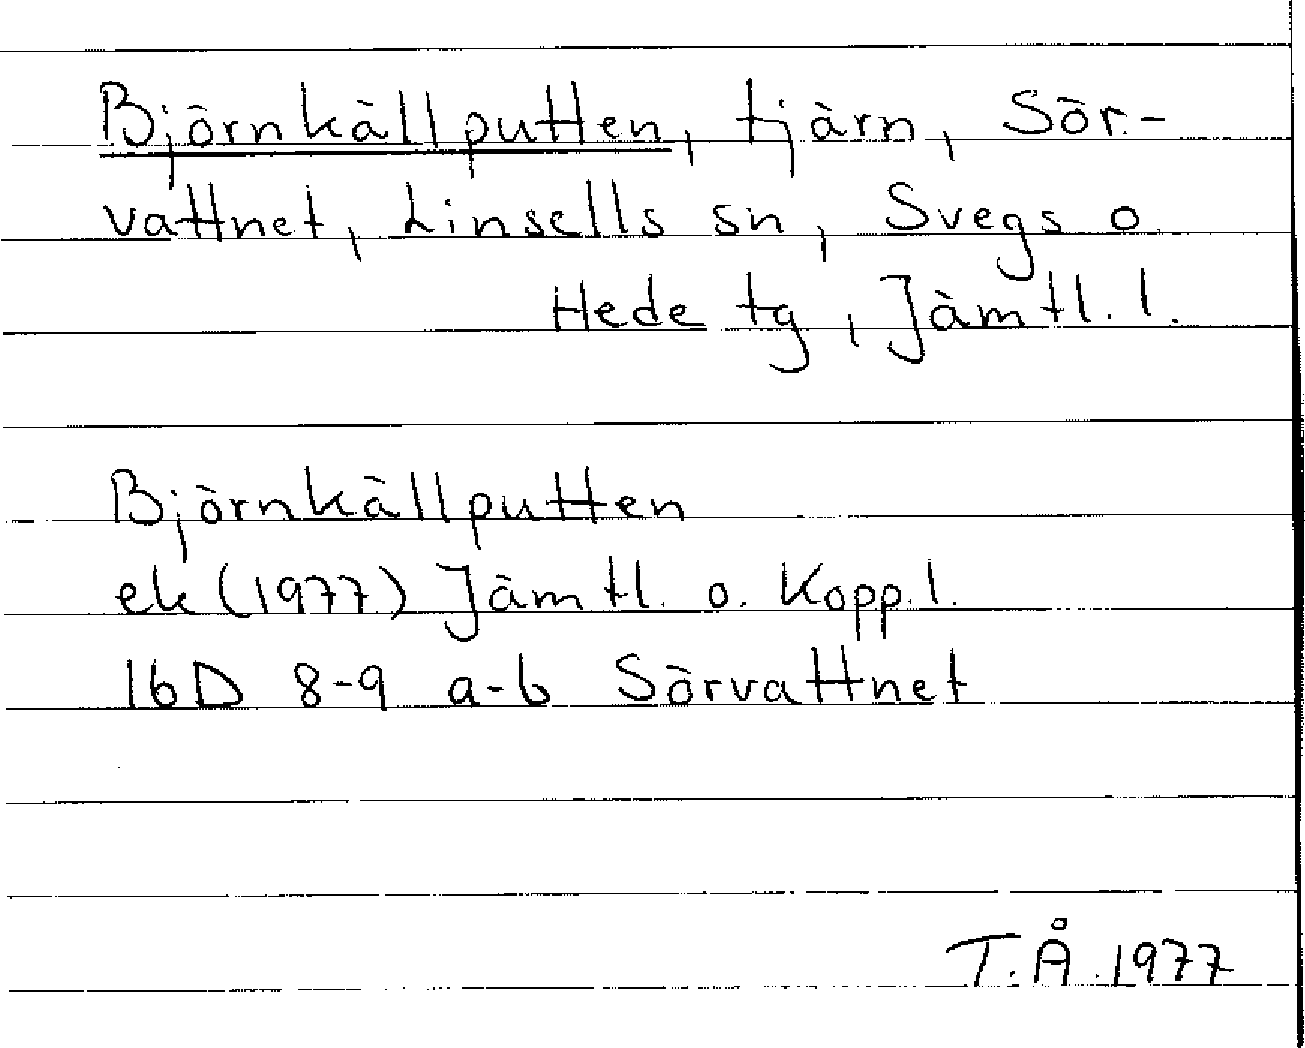 Björnkällputten, tjärn, Sör-
vattnet, Linsells sn, Svegs o
Hede tg, Jämtl. l.
Björnkällputten
ek (1977) Jämtl. o. Kopp. l.
16D 8-9 a-b Sörvattnet
T. Å. 1977